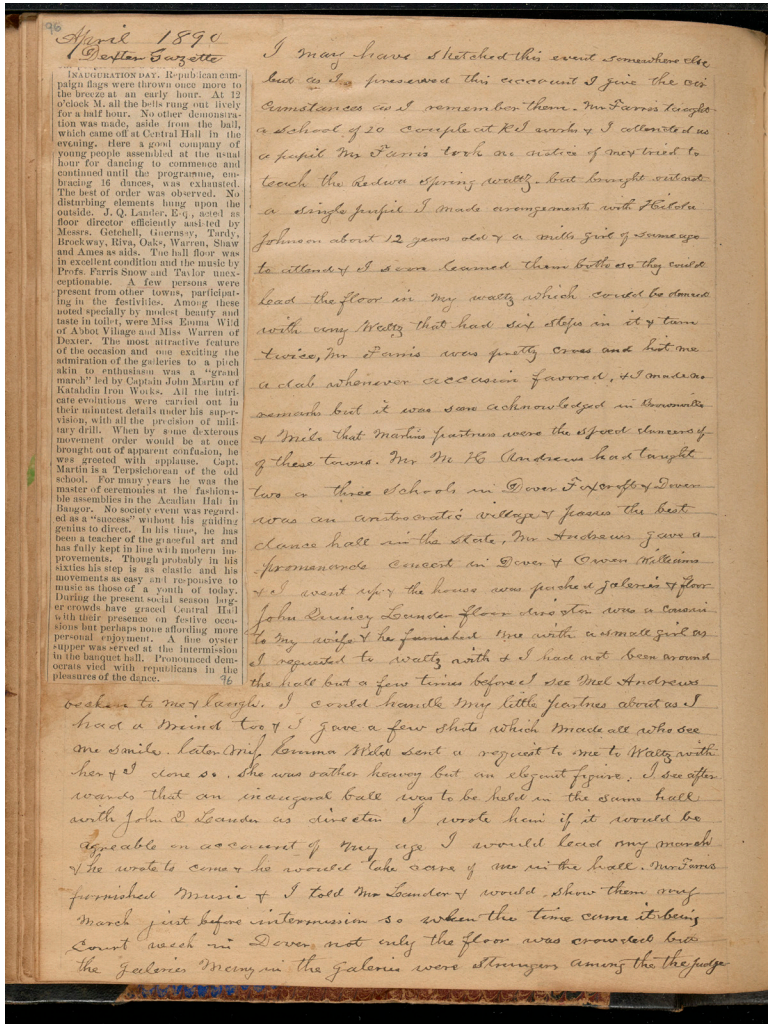 196
April 1890
Dexter Gazette
INAUGURATION DAY. Republican cam-
paign flags were thrown once more to
the breeze at an early hour. At 12
o'clock M. all the bells rung out lively
for a half hour. No other demonstra-
tion was made, aside from the ball,
which came off at Central Hall in the
evening. Here a good company of
young people assembled at the usual
hour for dancing to commence and
continued until the programme, em-
bracing 16 dances, was exhausted.
The best of order was observed. No
disturbing elements hung upon the
outside. J. Q. Lander, Esq., acted as
floor director efficiently assisted by
Messrs. Getchell, Guernsey, Tardy,
Brockway, Riva, Oaks, Warren, Shaw
and Ames as aids. The hall floor was
in excellent condition and the music by
Profs. Farris Snow and Taylor unex-
ceptionable. A few persons were
present from other towns, participat-
ing in the festivities. Among these
noted specially by modest beauty and
taste in toilet, were Miss Emma Wild
of Abbot Village and Miss Warren of
Dexter. The most attractive feature
of the occasion and one exciting the
admiration of the galleries to a pitch
akin to enthusiasm was a "grand
march" led by Captain John Martin of
Katahdin Iron Works. All the intri-
cate evolutions were carried out in
their minutest details under his super-
vision, with all the precision of mili-
tary drill. When by some dexterous
movement order would be at once
brought out of apparent confusion, he
was greeted with applause. Capt.
Martin is a Terpsichorean of the old
school. For many years he was the
master of ceremonies at the fashiona-
ble assemblies in the Acadian Hall in
Bangor. No society event was regard-
ed as a "success" without his guiding
genius to direct. In his time, he has
been a teacher of the graceful art and
has fully kept in line with modern im-
provements. Though probably in his
sixties his step is as elastic and his
movements as easy and responsive to
music as those of a youth of today.
During the present social season larg-
er crowds have graced Central Hall
with their presence on festive occa-
sions but perhaps none affording more
personal enjoyment. A fine oyster
supper was served at the intermission
in the banquet hall. Pronounced dem-
ocrats vied with republicans in the
pleasures of the dance. 96
I may have sketched this event somewhere else
but as I preserved this account I give the cir
cumstances as I remember them. Mr Farris taught
a school of 20 couple at K I works & I attended as
a pupil Mr Farris took no notice of me & tried to
teach the Redwa Spring waltz. but brought out not
a single pupil I made arangements with Hilda
Johnson about 12 years old & a mills girl of same age
to attend & I soon learned them both so they could
lead the floor in my waltz which could be danced
with any Waltz that had six steps in it & turn
twice, Mr Farris was pretty cross and hit me
a dab whenever occasion favored, & I made no
remarks but it was soon acknowledged in Brownville
& Milo that Martins partners were the speed dancers of
of these towns. Mr M H Andrews had taught
two or three Schools in Dover Foxcroft & Dover
was an aristrocratic village & posses the best
dance hall in the State, Mr Andrews gave a
promenarde concert in Dover & Owen Williams
& I went up & the house was packed galeries & floor
John Quincy Lander floor director was a cousin
to my wife & he furnished me with a small girl as
I requested to waltz with & I had not been around
the hall but a few times before I see Mel Andrews
to me & laugh. I could handle my little partner about as I
had a mind too & I gave a few shits which made all who see
me smile. later Emma Wild sent a request to me to Waltz with
her & I done so. she was rather heavey but an elegant figure. I see after
wards that an inaugeral ball was to be held in the same hall
with John Q Lander as director I wrote him if it would be
agreable on account of my age I would lead my march
& he wrote to come & he would take care of me in the hall. Mr Farris
furnished Music & I told Mr Lander I would show them my
March just before intermission so when the time came it being
Court week in Dover not only the floor was crowded but
the galeries Many in the galeries were strangers among the the judge